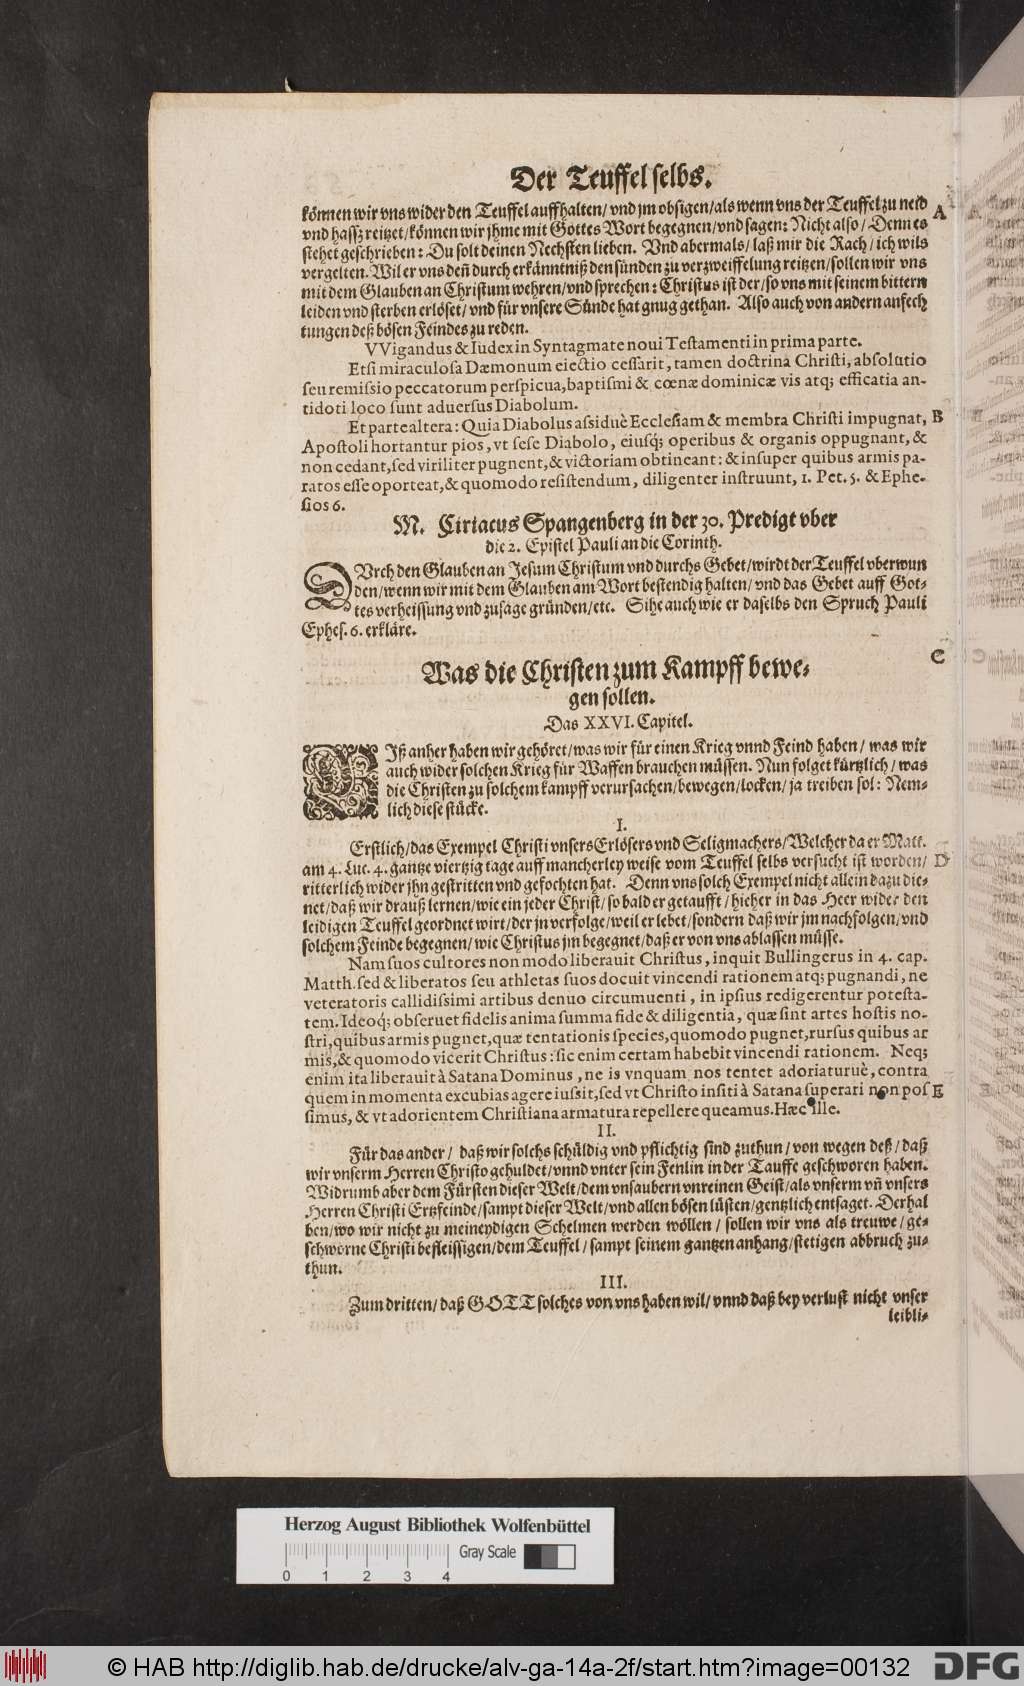 Der Teuffel selbs.
können wir vns wider den Teuffel auffhalten/ vnd jm obsigen/ als wenn vns der Teuffel zu neid
vnd hassz reitzet/ können wir jhme mit Gottes Wort begegnen/ vnd sagen: Nicht also/ Denn es
stehet geschrieben: Du solt deinen Nechsten lieben. Vnd abermals/ laß mir die Rach/ ich wils
vergelten. Wil er vns deñ durch erkänntniß den sünden zu verzweiffelung reitzen/ sollen wir vns
mit dem Glauben an Christum wehren/ vnd sprechen: Christus ist der/ so vns mit seinem bittern
leiden vnd sterben erlöset/ vnd für vnsere Sünde hat gnug gethan. Also auch von andern anfech
tungen deß bösen Feindes zu reden.
VVigandus & Iudex in Syntagmate noui Testamenti in prima parte.
Etsi miraculosa Dæmonum eiectio cessarit, tamen doctrina Christi, absolutio
seu remissio peccatorum perspicua, baptismi & cœnæ dominicæ vis atq; efficatia an-
tidoti loco sunt aduersus Diabolum.
Et parte altera: Quia Diabolus assiduè Ecclesiam & membra Christi impugnat,
Apostoli hortantur pios, vt sese Diabolo, eiusq; operibus & organis oppugnant, &
non cedant, sed viriliter pugnent, & victoriam obtineant: & insuper quibus armis pa-
ratos esse oporteat, & quomodo resistendum, diligenter instruunt, 1. Pet. 5. & Ephe-
sios 6.
M. Ciriacus Spangenberg in der 30. Predigt vber
die 2. Epistel Pauli an die Corinth.
DVrch den Glauben an Jesum Christum vnd durchs Gebet/ wirdt der Teuffel vberwun
den/ wenn wir mit dem Glauben am Wort bestendig halten/ vnd das Gebet auff Got-
tes verheissung vnd zusage gründen/ etc. Sihe auch wie er daselbs den Spruch Pauli
Ephes. 6. erkläre.
Was die Christen zum Kampff bewe-
gen sollen.
Das XXVI. Capitel.
BIß anher haben wir gehöret/ was wir für einen Krieg vnnd Feind haben/ was wir
auch wider solchen Krieg für Waffen brauchen müssen. Nun folget kürtzlich/ was
die Christen zu solchem kampff verursachen/ bewegen/ locken/ ja treiben sol: Nem-
lich diese stücke.
I.
Erstlich/ das Exempel Christi vnsers Erlösers vnd Seligmachers/ Welcher da er Matt.
am 4. Luc. 4. gantze viertzig tage auff mancherley weise vom Teuffel selbs versucht ist worden/
ritterlich wider jhn gestritten vnd gefochten hat. Denn vns solch Exempel nicht allein dazu die-
net/ daß wir drauß lernen/ wie ein jeder Christ/ so bald er getaufft/ hieher in das Heer wider den
leidigen Teuffel geordnet wirt/ der jn verfolge/ weil er lebet/ sondern daß wir jm nachfolgen/ vnd
solchem Feinde begegnen/ wie Christus jm begegnet/ daß er von vns ablassen müsse.
Nam suos cultores non modo liberauit Christus, inquit Bullingerus in 4. cap.
Matth. sed & liberatos seu athletas suos docuit vincendi rationem atq; pugnandi, ne
veteratoris callidissimi artibus denuo circumuenti, in ipsius redigerentur potesta-
tem. Ideoq; obseruet fidelis anima summa fide & diligentia, quæ sint artes hostis no-
stri, quibus armis pugnet, quæ tentationis species, quomodo pugnet, rursus quibus ar
mis, & quomodo vicerit Christus: sic enim certam habebit vincendi rationem. Neq;
enim ita liberauit à Satana Dominus, ne is vnquam nos tentet adoriaturuè, contra
quem in momenta excubias agere iussit, sed vt Christo insiti à Satana superari non pos
simus, & vt adorientem Christiana armatura repellere queamus. Hæc ille.
II.
Für das ander/ daß wir solchs schüldig vnd pflichtig sind zuthun/ von wegen deß/ daß
wir vnserm Herren Christo gehuldet/ vnnd vnter sein Fenlin in der Tauffe geschworen haben.
Widrumb aber dem Fürsten dieser Welt/ dem vnsaubern vnreinen Geist/ als vnserm vñ vnsers
Herren Christi Ertzfeinde/ sampt dieser Welt/ vnd allen bösen lüsten/ gentzlich entsaget. Derhal
ben/ wo wir nicht zu meineydigen Schelmen werden wöllen/ sollen wir vns als treuwe/ ge-
schworne Christi befleissigen/ dem Teuffel/ sampt seinem gantzen anhang/ stetigen abbruch zu-
thun.
III.
Zum dritten/ daß GOTT solches von vns haben wil/ vnnd daß bey verlust nicht vnser
leibli-
A
B
C
D
E
Herzog August Bibliothek Wolfenbüttel
Gray Scale
0 1 2 3 4
© HAB http://diglib.hab.de/drucke/alv-ga-14a-2f/start.htm?image=00132
DFG